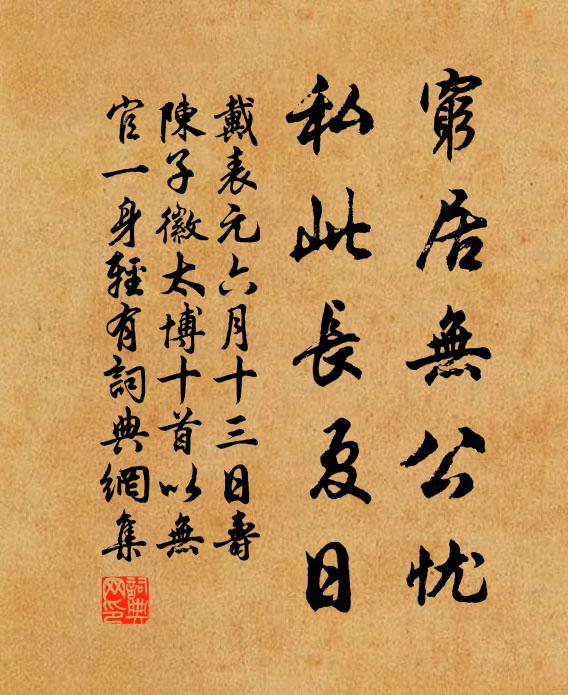 窮居無公忧
私此長夏日
戴表元六月十三日壽
陳子徽太博十首以無
官一身輕有詞典網集
詞典
网印